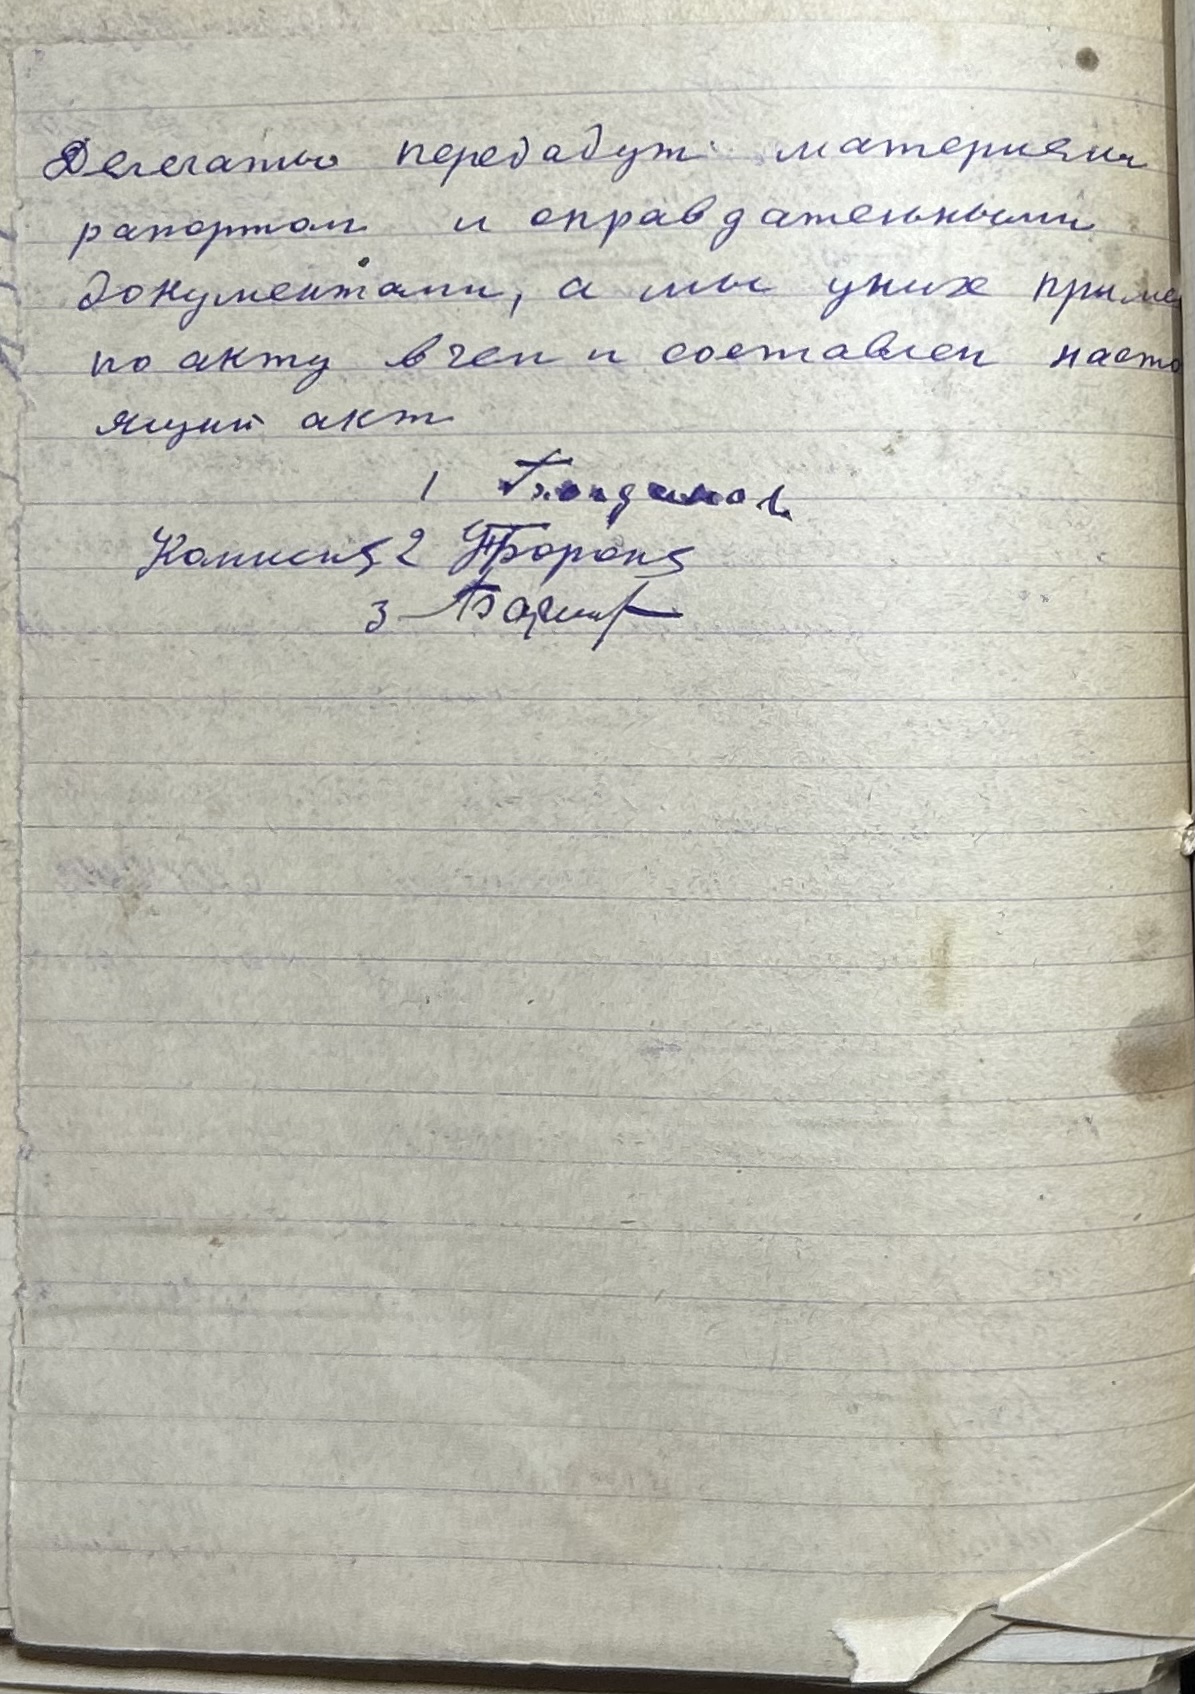 Делегаты передадут материялы
рапортом и оправдательными
документами, а мы уних приме
по акту вчем и составлен насто
ящий акт
1
Комисия 2
3